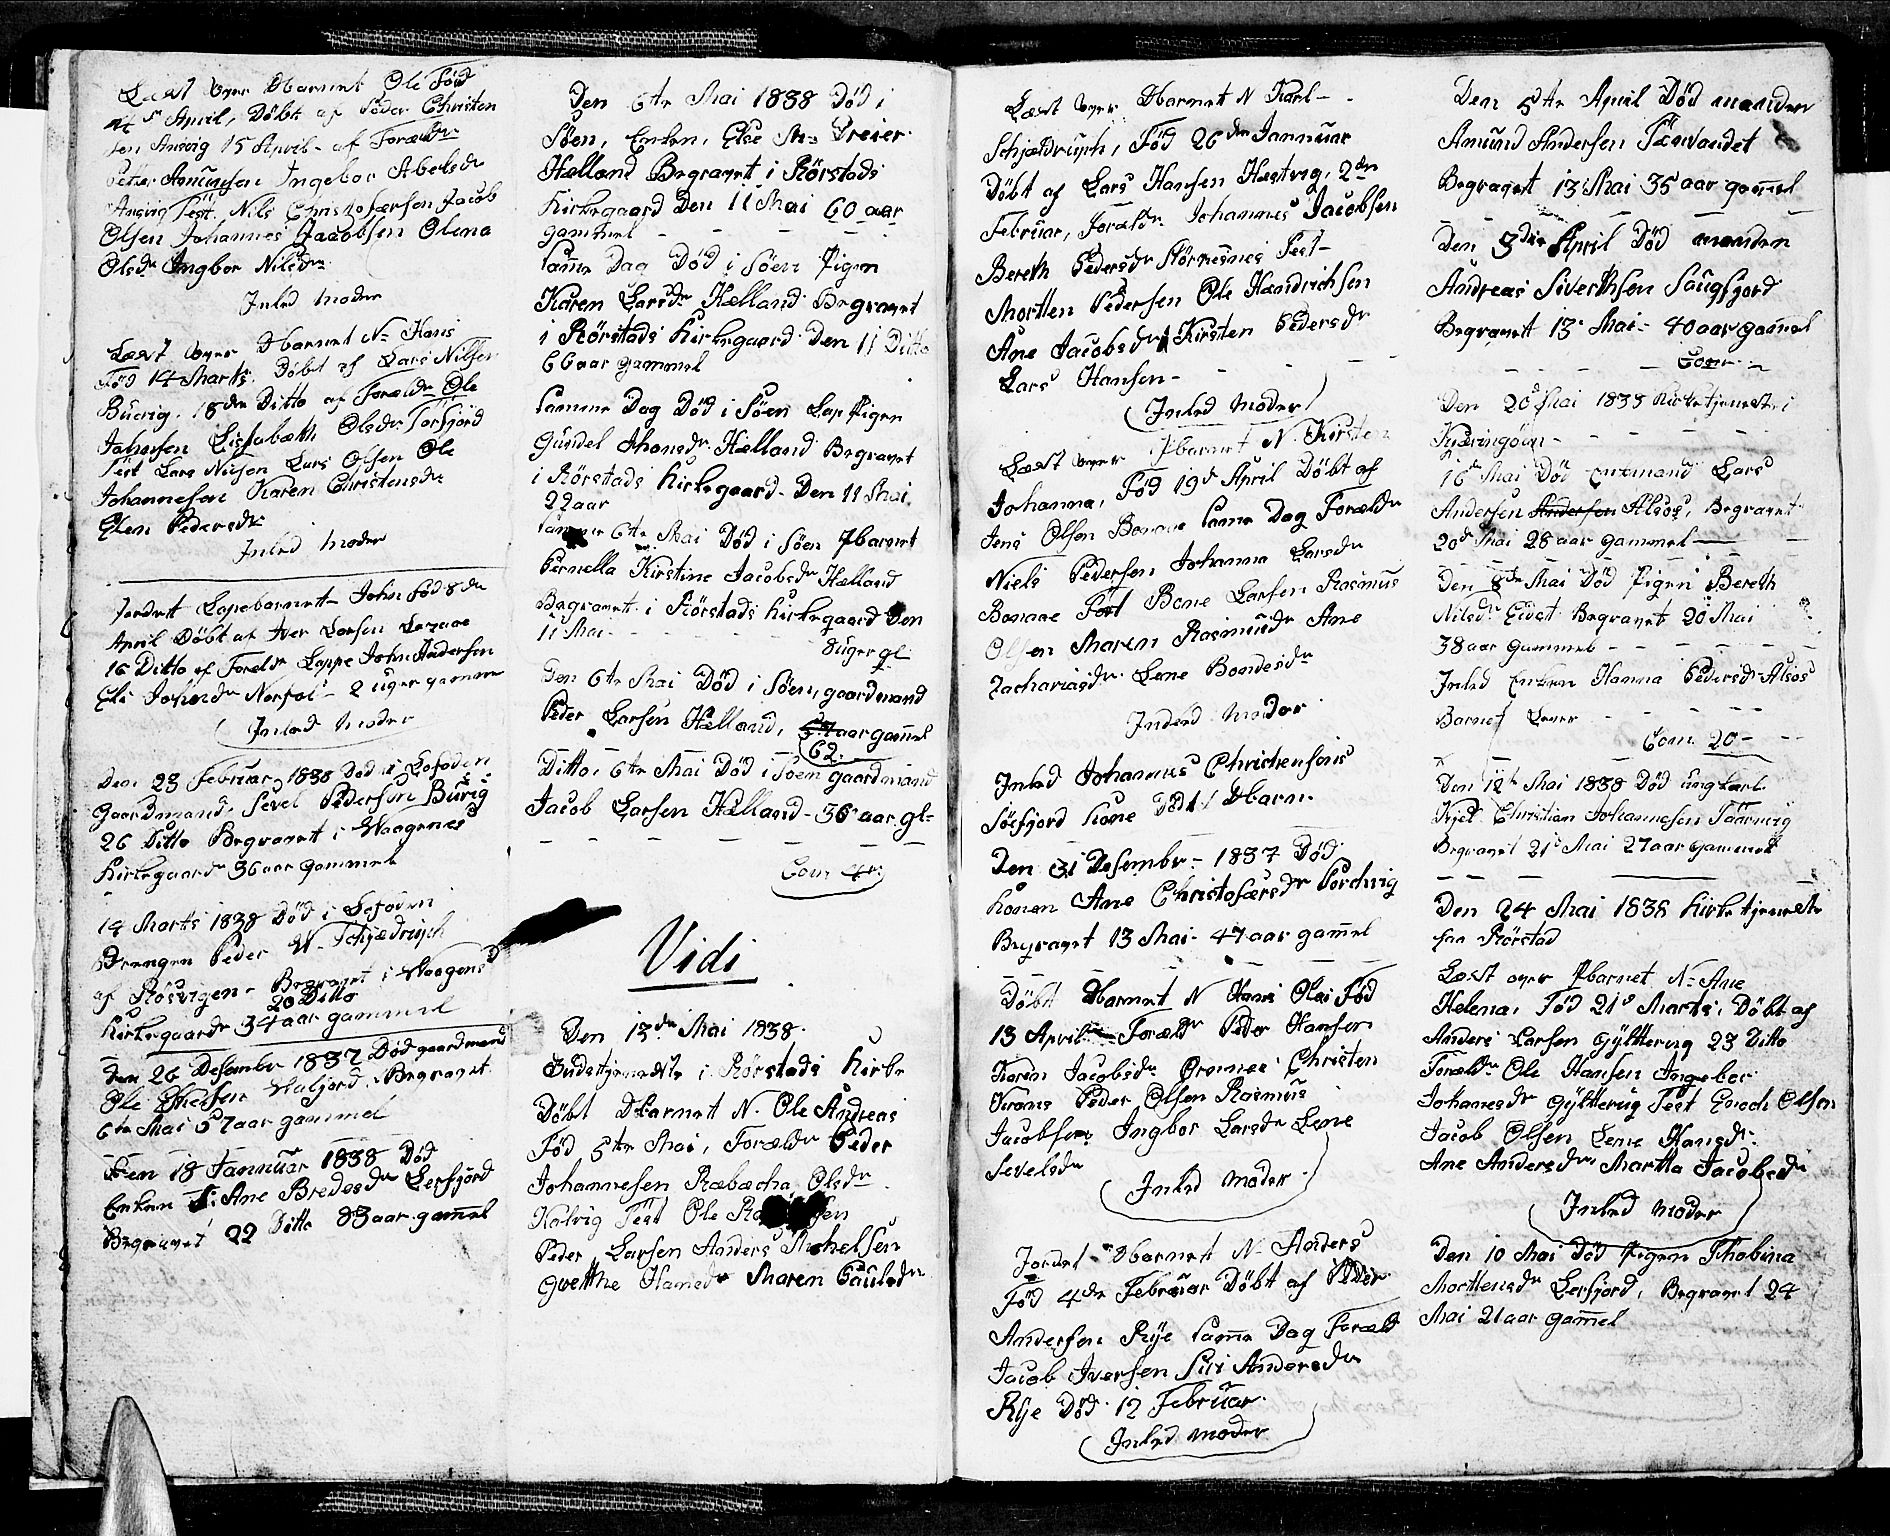 Læst over Dbarnet Ole Fød
5 April, Døbt af Peder Christen
sen Anvig 15 April - af Foreldr
Petter Amunsen Ingebor Abelsdr
Anvig Test. Nils Christofersen Jacob
Olsen Johannes Jacobsen Olena
Olsdr Ingbor Nilsdr
Inled Moder
Læst over Dbarnet N- Hans
Fød 14 Marts. Døbt af Lars Nilsen
Buvig. 18de Ditto af Foreldr Ole
Johnsen Lissabæth Olsdr Torfjord
Test Lars Nilsen Lars Olsen Ole
Johannesen Karen Christensdr
Elen Pedersdr
Inled Moder
Jordet Lapebarnet John Fød 8de
April Døbt af Iver Larsen
16 Ditto af Foreldr Lappe John Andersen
Eli Johnsdr 2 uger gammel
Inled Moder
Den 23 Februar 1838 Død i Lofoden
Gaardmand, Sevel Pedersen Buvig
26 Ditto Begravet i Waagenes
Kirkegaard 36 aar gammel
14 Marts 1838 Død i Lofoden
Drengen Peder W- Schjedrusch
af Røsvigen - Begravet i Waagens
20 Ditto
Kirkegaard 34 aar gammel
Den 26 Desember 1837 Død gaardmand
Ole Valfjord. Begravet
6te Mai 57 aar gammel
Den 18 Jannuar 1838 Død
Enken Ane Bredesdr Lerfjord
Begravet 22 Ditto 83 aar gammel
Den 6te Mai 1838 Død i
Søen, Enken, Else M= Dreier
Hælland Begravet i Rørstads
Kirkegaard Den 11 Mai 60 aar
gammel
samme Dag Død i Søen Pigen
Karen Larsdr Hælland Begravet
i Rørstads Kirkegaard Den 11 Ditto
66 aar gammel
samme Dag Død i Søen Lap Pigen
Gundel Thomsdr Hælland Begravet
i Rørstads Kirkegaard - Den 11 Mai
22 aar
6te Mai Død i Søen Pbarnet
Pernella Kirstine Jacobsdr Hælland
Begravet i Rørstads Kirkegaard Den
11 Mai
8 uger gl
Den 6te Mai Død i Søen, gaardmand
Peder Larsen Hælland, 57 aar gamel
62
Ditto 6te Mai Død i Søen gaardmand
Jacob Larsen Hælland - 36 aar gl=
Com 4
Vidi
Den 13de Mai 1838.
Gudstjeneste i Rørstads Kirke
Døbt Dbarnet N. Ole Andreas
Fød 5te Mai, Foreldr Peder
Johannesen Ræbæcha Olsdr
Kalvig Test Ole
Peder Larsen Anders Michelsen
Grette Hansdr Maren Paulsdr
Læst over Dbarnet N Karl -
Schjeldrusch, Fød 26de Jannuar
Døbt af Lars Hansen Hestvig, 2den
Februar, Foreldr Johannes Jacobsen
Bereth Pedersdr Kørnesnes Test -
Mortten Pedersen Ole Hendrichsen
Ane Jacobsdr Kirsten Pedersdr
Lars Hansen -
Inled Moder
Læst over Pbarnet N. Kirsten
Johanna, Fød 19de April Døbt af
Jens Olsen Bonaae samme Dag Foreldr
Niels Pedersen Johanna Larsdr
Bonaae Test Bone Larsen Rasmus
Olsen Maren Rasmusdr Ane
Zachariasdr Lene Bondesdr
Inled Moder
Inled Johannes Christensens
Søefjord Kone Død Dbarn
Den 31 Desember - 1837 Død
Konen Ane Christofersdr Tordivig
Begravet 13 Mai - 47 aar gamel
Døbt Dbarnet N Hans Olai Fød
13 April Foreldr Peder Hansen
Karen Jacobsdr Christen
Peder Olsen Rasmus
Jacobsen Ingbor Larsdr Lene
Sevelsdr
Inled Moder
Jordet Dbarnet N- Anders
Fød 4de Februar Døbt af Peder
Andersen Rye samme Dag Foreld
Jacob Iversen Siri Andersdr
Rye Død 12 Februar
Inled Moder
Den 5te April Død manden
Amund Andersen Tørvandet
Begravet 13 Mai 35 aar gamel
Den 3die April Død manden
Andreas Siverthsen Laugsjord
Begravet 13 Mai - 40 aar gamel
Com
Den 20de Mai 1838 Kirketjeneste i
Kjerringøen -
16de Mai Død Enkemand Lars
Andersen Andersen Alsos, Begravet
20de Mai 28 aar gammel
Den 8de Mai Død Pigen Bereth
Nilsdr Eidet Begravet 20 Mai
38 aar gammel -
Inled Enken Hanna Pedersdr Alsos
Barnet Lever
Com 20 -
Den 12te Mai 1838 Død ungkarl
Kjel Christian Johannesen Taarnvig
Begravet 21de Mai 27 aar gammel
Den 24 Mai 1838 Kirketjeneste
paa Rørstad
Læst over Pbarnet N- Ane
Helena, Fød 21de Marts, Døbt af
Anders Larsen Gyltterviig 23 Ditto
Foreldr Ole Hansen Ingebor
Johanesdr Gyltterviig Test Enoch Olsen
Jacob Olsen Lene Hansdr.
Ane Andersdr Martta Jacobsdr
Inled Moder
Den 10 Mai Død Pigen Thobina
Morttensdr Lerfjord, Begravet 24
Mai 21 aar gamel